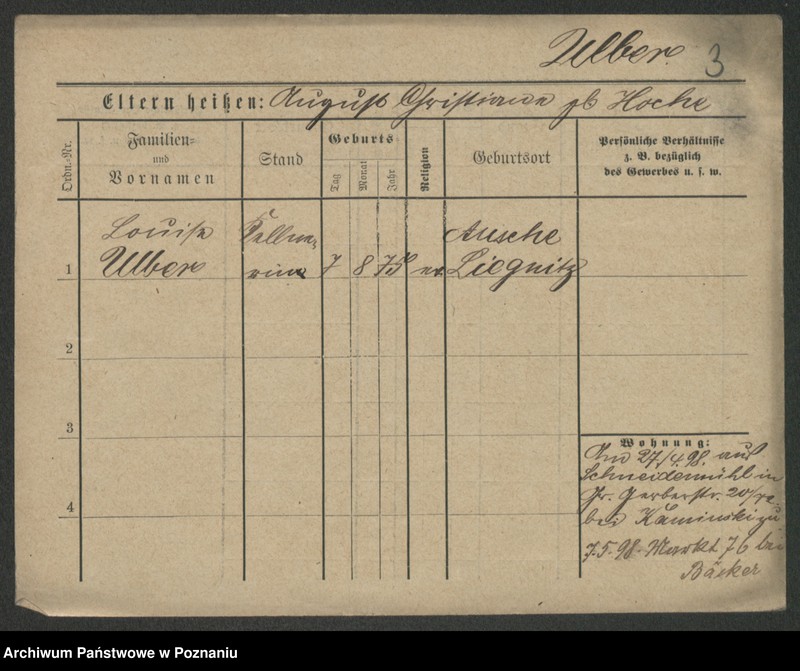 Ulber. 3
Eltern heißen: August Christiane gb Hoche
Ordn.-Nr.
Familien=
und
Vornamen
Stand
Geburts
Tag
Monat
Jahr
Religion
Geburtsort
Persönliche Verhältnisse
z. B. bezüglich
des Gewerbes u. s. w.
Louise Kellne= Ausche
1 Ulber rin 7 8 75 ev. Liegnitz
2
3
Wohnung:
Am 27/4.98. aus
Schneidemühl in
Gr. Gerberstr. 20
4 bei Kaminski zu
7.5.98. Markt 76 bei
Bäcker
Archiwum Państwowe w Poznaniu